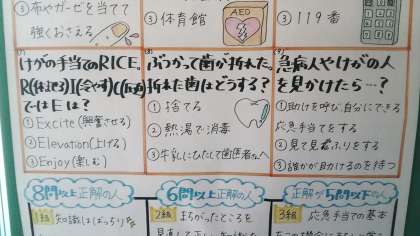 ③布やガーゼを当てて
強くおさえる
③体育館
AED
③119番
(7)
けがの手当てのRICE。
R(休ませる)I(冷やす)C(圧迫)
ではEは?
①Excite(興奮させる)
②Elevation(上げる)
③Enjoy(楽しむ)
(8)
ぶつかって歯が折れた。
折れた歯はどうする?
①捨てる
②熱湯で消毒
③牛乳にひたして歯医者へ
(9)
急病人やけがの人
を見かけたら…?
①助けを呼び、自分にできる
応急手当てをする
②見て見ぬふりをする
③誰かが助けるのを待つ
8問以上正解の人
1組 知識はばっちり
6問以上正解の人
2組 まちがったところを
正解が5問以下の人
3組 応急手当ての基本